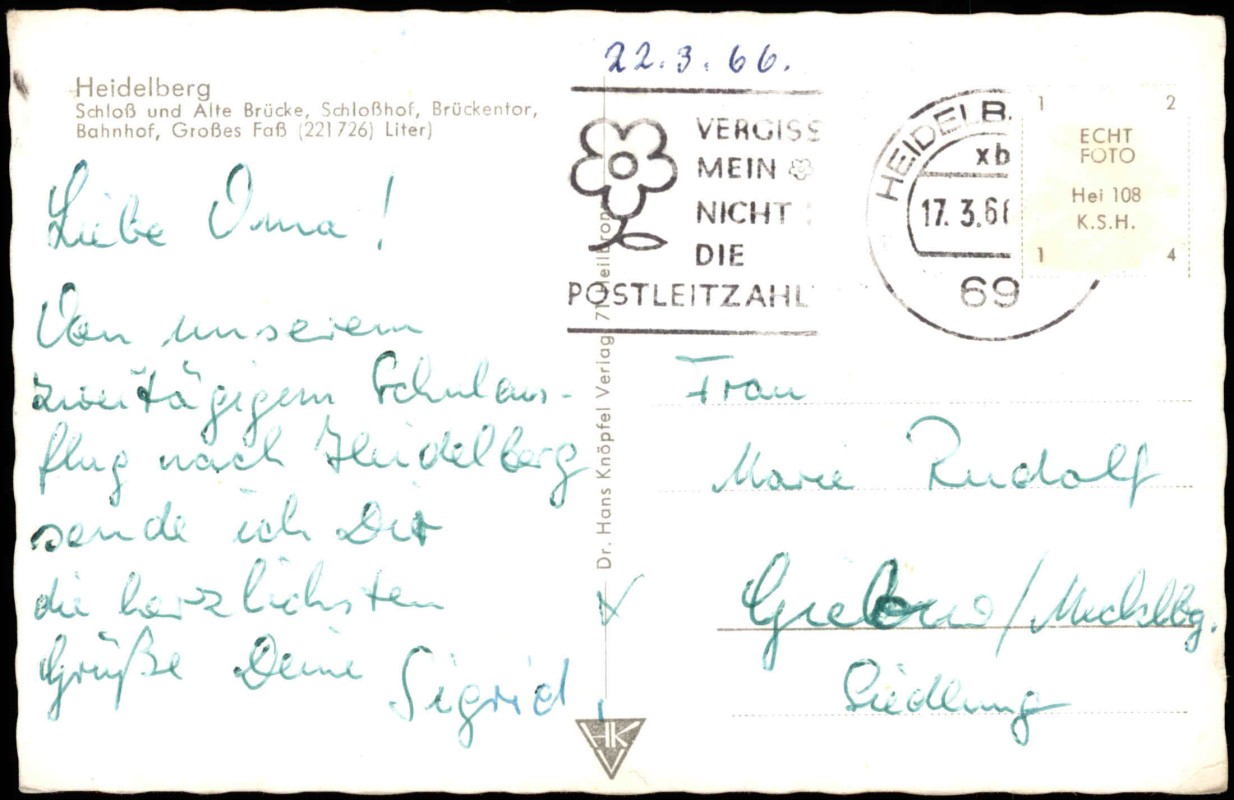 22.3.66.
Heidelberg
Schloß und Alte Brücke, Schloßhof, Brückentor,
Bahnhof, Großes Faß (221726) Liter)
VERGISS
MEIN
NICHT
DIE
POSTLEITZAHL
HEIDELB
xb
17.3.66
69
1 2
ECHT
FOTO
Hei 108
K.S.H.
1 4
Liebe Oma!
Von unserem
zweitägigem Schulaus-
flug nach Heidelberg
sende ich Dir
die herzlichsten
Grüße Deine Sigrid.
Dr. Hans Knöpfel Verlag 71 Heilbronn
Frau
Marie Rudolf
/Mecklbg.
Siedlung
HKV